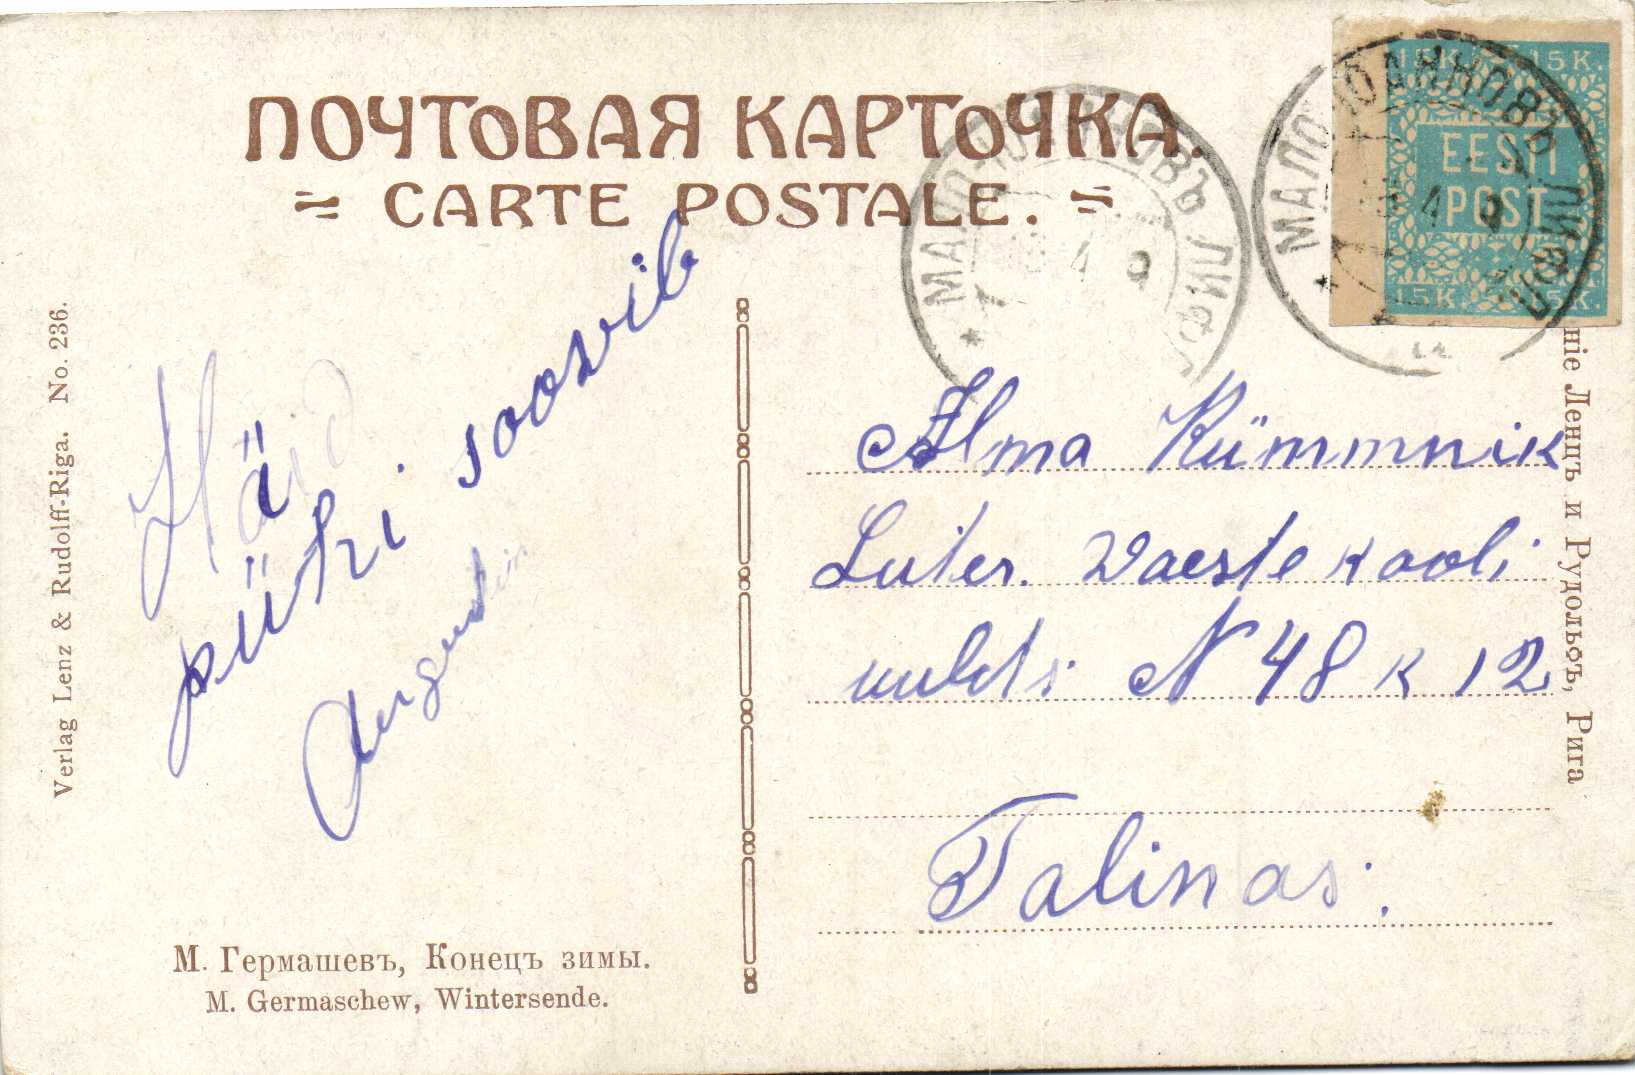 ПОЧТОВАЯ КАРТОЧКА.
CARTE POSTALE.
15 K. 15 K.
EESTI
POST
15 K. 15 K.
МАЛО-ІОАННОВЪ ЛИФЛ
МАЛО-ІОАННОВЪ ЛИФЛ
Verlag Lenz & Rudolff-Riga. No. 236.
Häid
pühi soovib
August
Alma Kümmnik
Luter. Vaestekooli
uulits N 48 k 12
Talinas.
ніе Ленцъ и Рудольфъ, Рига
М. Гермашевъ, Конецъ зимы.
M. Germaschew, Wintersende.